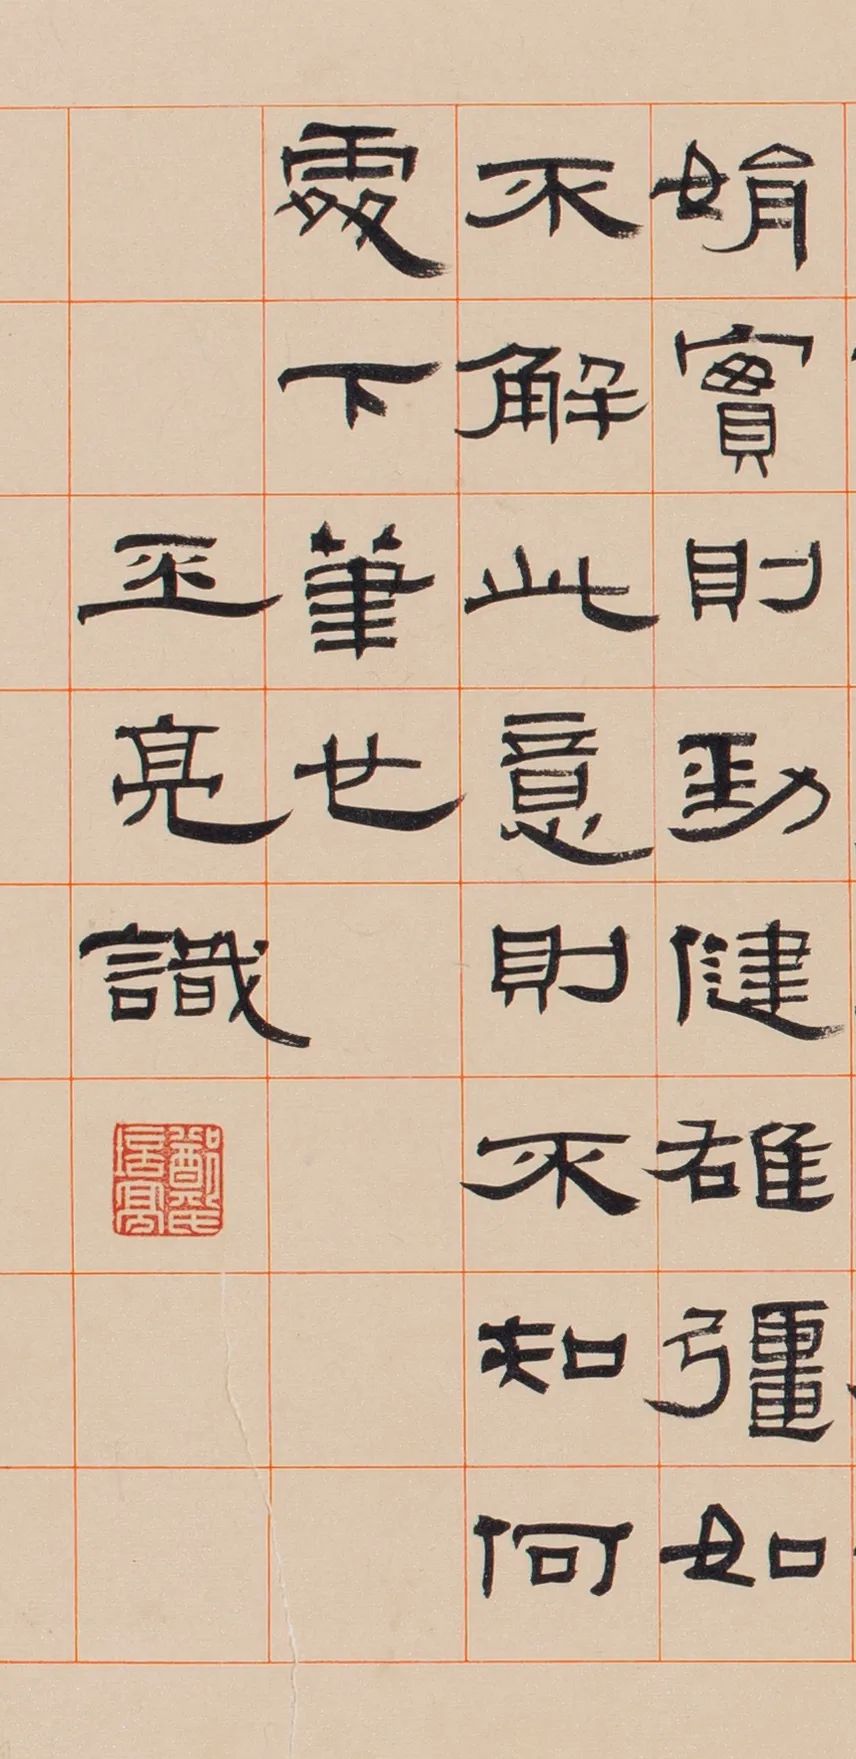 娟實則勁健雄彊如
不解此意則不知何
處下筆也
丕亮識